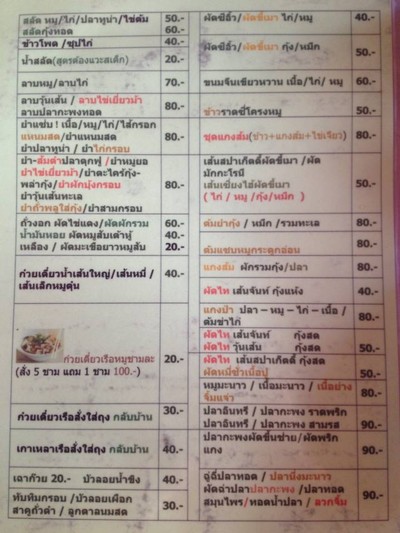 สลัด หมู/ไก่/ปลาทูน่า/ไข่ต้ม 50.-
สลัดกุ้งทอด 60.-
ข้าวโพด/ซุปไก่ 40.-
น้ำสลัด(สูตรต้องแวะสเต็ก) 20.-
ลาบหมู/ลาบไก่ 70.-
ลาบวุ้นเส้น / ลาบไข่เยี่ยวม้า
ลาบปลากะพงทอด 80.-
ยำแซ่บ ! เนื้อ/หมู/ไก่/ไส้กรอก
แหนมสด/ยำแหนมสด
ยำปลาทูน่า / ยำไก่กรอบ 80.-
ยำ-ส้มตำปลาดุกฟู / ยำหมูยอ
ยำไข่เยี่ยวม้า/ยำตะไคร้กุ้ง-
พล่ากุ้ง/ยำผักบุ้งกรอบ 80.-
ยำวุ้นเส้นทะเล
ยำถั่วพลูใส่กุ้ง/ยำสามกรอบ
ถั่วงอก ผัดไข่แดง/ผัดผักรวม 60.-
น้ำมันหอย ผัดหมูสับเต้าหู้ 40.-
เหลือง / ผัดมะเขือยาวหมูสับ 20.-
ก๋วยเตี๋ยวน้ำเส้นใหญ่/เส้นหมี่/
เส้นเล็กหมูตุ๋น 40.-
ก๋วยเตี๋ยวเรือหมูชามละ 20.-
(สั่ง 5 ชาม แถม 1 ชาม 100.-)
ก๋วยเตี๋ยวเรือใส่ถุง กลับบ้าน 30.-
เกาเหลาเรือใส่ถุง กลับบ้าน 40.-
เฉาก๊วย 20.- บัวลอยน้ำขิง 40.-
ทับทิมกรอบ /บัวลอยเผือก
สาคูถั่วดำ / ลูกตาลนมสด 30.-
ผัดซีอิ๊ว/ผัดขี้เมา ไก่/หมู 40.-
ผัดซีอิ๊ว/ผัดขี้เมา กุ้ง/หมึก 50.-
ขนมจีนเขียวหวาน เนื้อ/ไก่/ หมู 40.-
ข้าวราดซี่โครงหมู 50.-
ชุดแกงส้ม(ข้าว+แกงส้ม+ไข่เจียว) 80.-
เส้นสปาเก็ตตี้ผัดขี้เมา /ผัด
มักกะโรนี
เส้นเซี่ยงไฮ้ผัดขี้เมา 50.-
( ไก่ / หมู /กุ้ง /หมึก )
ต้มยำกุ้ง / หมึก /รวมทะเล 80.-
ต้มแซบหมูกระดูกอ่อน 80.-
แกงส้ม ผักรวมกุ้ง/ปลา 80.-
ผัดไท เส้นจันท์ กุ้งแห้ง 40.-
แกงป่า ปลา – หมู – ไก่ – เนื้อ /
ต้มข่าไก่ 80.-
ผัดไท เส้นจันท์ กุ้งสด
ผัดไท วุ้นเส้น กุ้งสด 50.-
ผัดไท เส้นสปาเก็ตตี้ กุ้งสด
ผัดหมี่ซั่วเนื้อปู 50.-
หมูมะนาว / เนื้อมะนาว / เนื้อย่าง
จิ้มแจ่ว 80.-
ปลาอินทรี / ปลากะพง ราดพริก
ปลาอินทรี / ปลากะพง สามรส 90.-
ปลากะพงผัดขึ้นช่าย/ผัดพริก
แกง 90.-
ฉู่ฉี่ปลาทอด / ปลานึ่งมะนาว
ผัดฉ่าปลาปลากะพง /ปลาทอด
สมุนไพร/ทอดน้ำปลา / ลวกจิ้ม 90.-